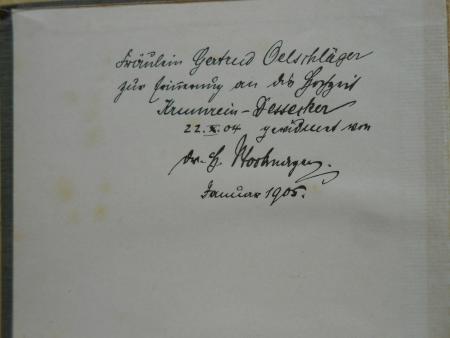 Fräulein Gertrud Oelschläger
zur Erinnerung an die Hochzeit
Krumrein-Dessecker
22.X.04 gewidmet von
Dr. H.
Januar 1905.